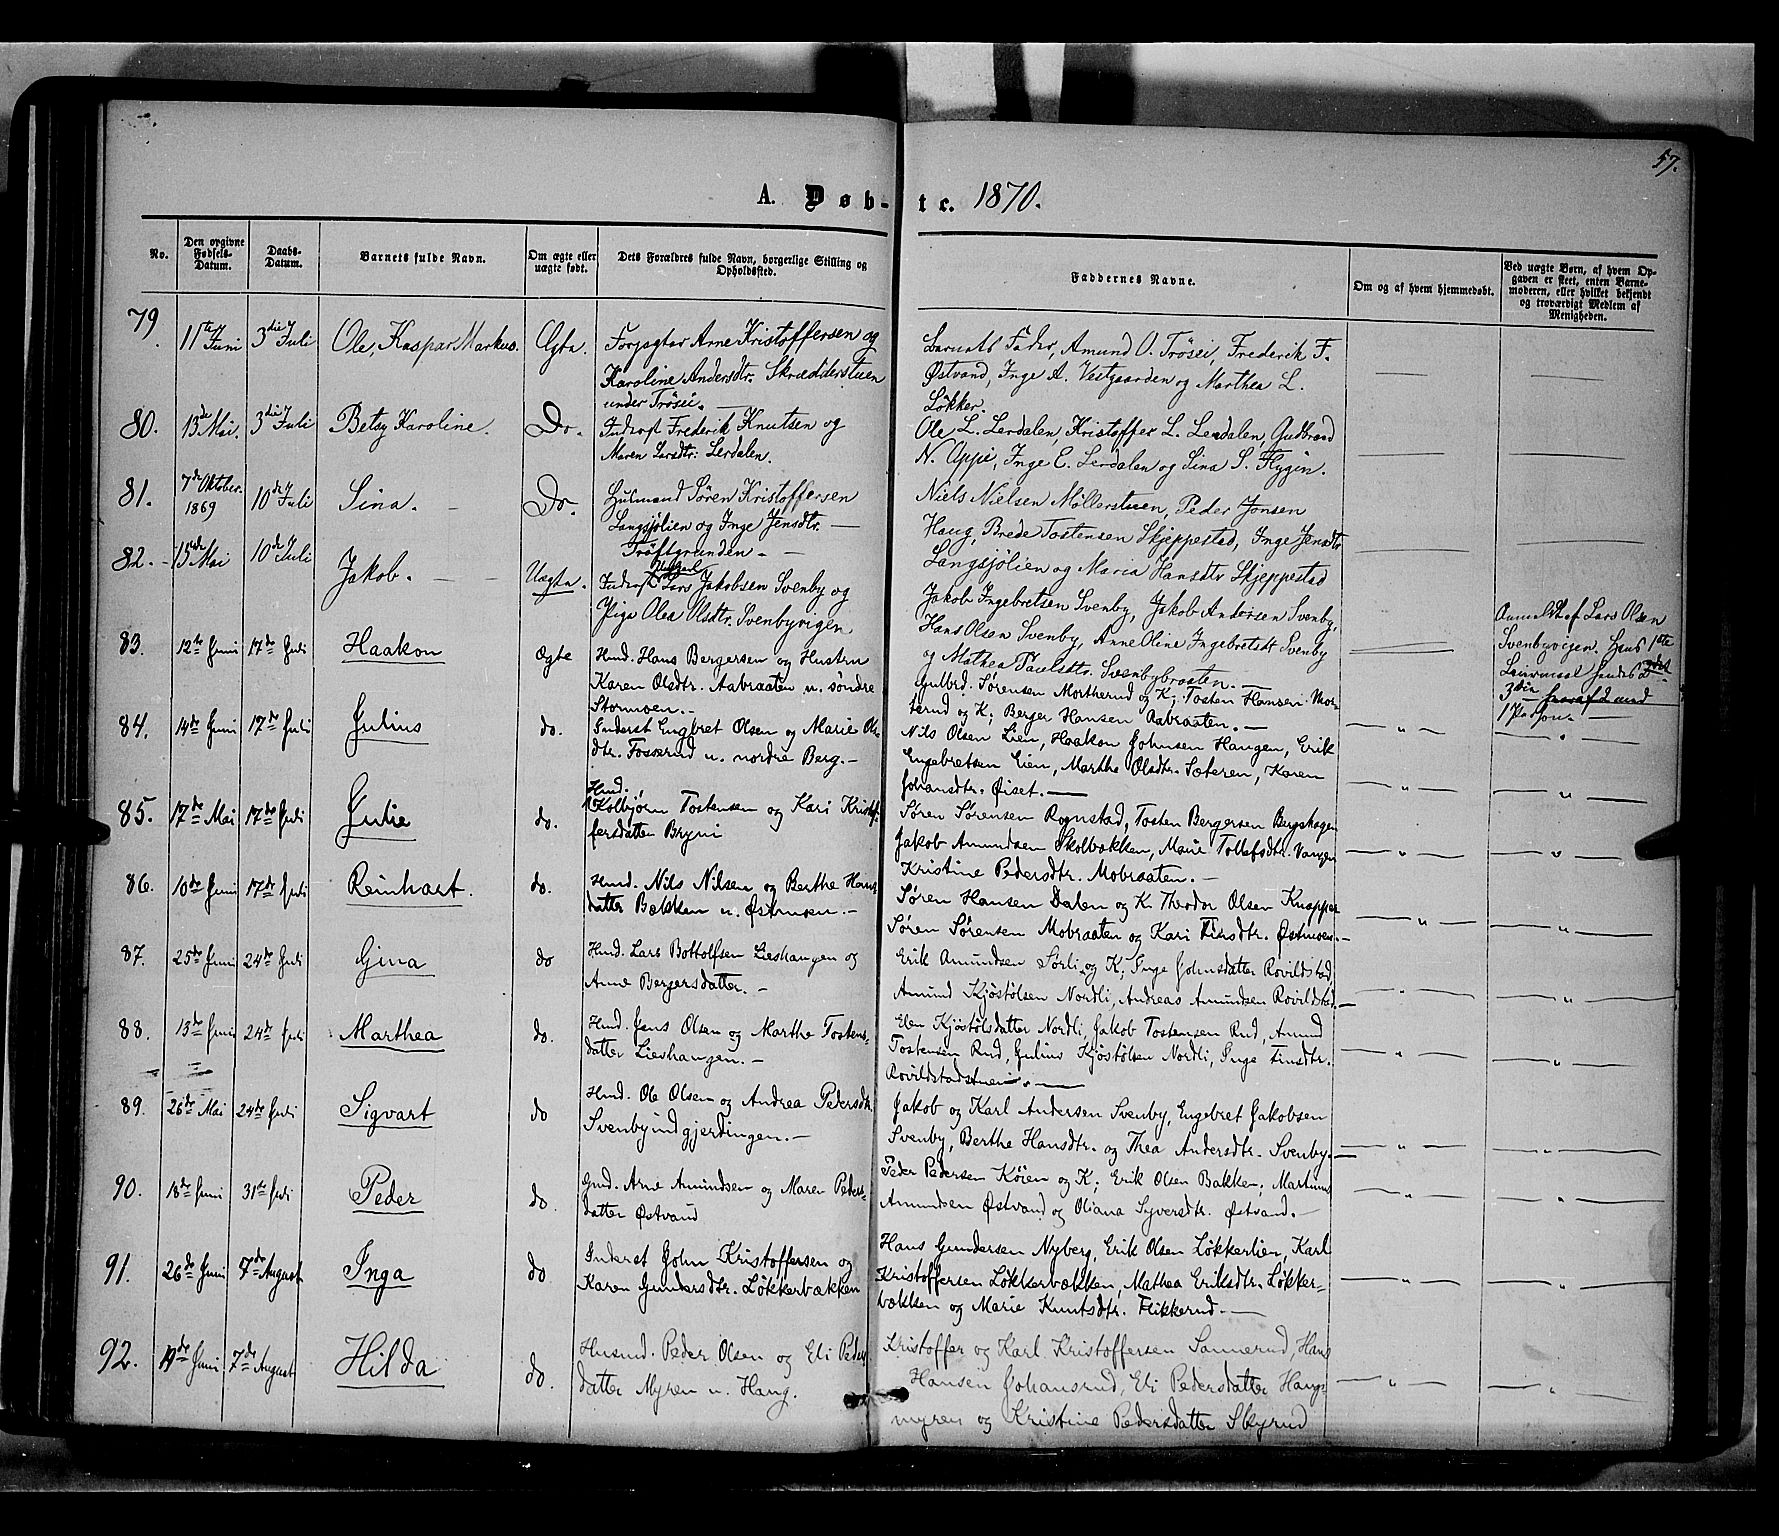 57.
A. Døb- te. 1870.
No.
Den opgivne Fødsels-Datum.
Daabs-Datum.
Barnets fulde Navn.
Om ægte eller uægte født.
Dets Forældres fulde Navn, borgerlige Stilling og Opholdssted.
Faddernes Navne.
Om og af hvem hjemmedøbt.
Ved uægte Børn, af hvem Opgaven er skeet, enten Barnemoderen, eller hvilket bekjendt og troværdigt Medlem af Menigheden.
79. 11te Juni 3die Juli Ole, Kaspar Markus. Ægte.
Forpagter Arne Kristoffersen og
Karoline Andersdtr. Skrædderstuen
under Trösei.
Barnets Fader, Amund O. Trösei, Frederik F.
Østvand, Inge A. Vestgaarden og Marthea L.
Løkker.
80. 13de Mai. 3die Juli Betsy Karoline. Do.
Inderst Frederik Knutsen og
Maren Larsdtr: Lerdalen.
Ole L. Lerdalen, Kristoffer L. Lerdalen, Gudbrand
N. Oppi, Inge E. Lerdalen og Sina S. Flygin.
81. 7de Oktober. 1869 10de Juli Sina. Do.
Husmand Sören Kristoffersen
Langsjölien og Inge Jensdtr. —
Tröftgrunden. —
Niels Nielsen Möllerstuen, Peder Jonsen
Haug, Brede Tostensen Skjeppestad, Inge Jensdtr
Langsjölien og Maria Hansdtr Skjeppestad
82. 15de Mai 10de Juli Jakob. Uægte.
Inderst Ungkarl Lars Jakobsen Svenby og
Pige Olea Olsdtr. Svenbyvigen
Jakob Ingebretsen Svenby, Jakob Andersen Svenby,
Hans Olsen Svenby, Anne Oline Ingebretsdt Svenby
og Mathea Paulsdtr. Svenbybraaten. —
Anmeldt af Lars Olsen
Svenbyvigen. Hans 1ste
Leiermaal hendes 2det
3die
83. 12te Juni 17de Juli Haakon Ægte
Hmd. Hans Bergersen og Hustru
Karen Olsdtr. Aabraaten u. söndre
Stormoen. —
Gulbrd. Sørensen Mortherud og K; Tosten Hansen Mor-
terud og K; Berger Hansen Aabraaten. —
84. 14de Juni 17de Juli Julius do.
Inderst Engbret Olsen og Marie Ols
dtr. Fosserud u. nordre Berg. —
Nils Olsen Lien, Haakon Johnsen Haugen, Erik
Engebretsen Lien, Marthe Olsdtr. Sæteren, Karen
Johansdtr. Øiset. —
85. 17de Mai 17de Juli Julie do.
Hmd.
Kolbjørn Tostensen og Kari Kristof
fersdatter Bryni
Søren Sørensen Rognstad, Tosten Bergersen Bergshagen
Jakob Amundsen Skolbækken, Marie Tollefsdtr. Vangen
Kristine Pedersdtr. Mobraaten. —
86. 10de Juni 17de Juli Reinhart. do.
Hmd. Nils Nilsen og Berthe Hans
datter Bækken u. Østmoen. —
Søren Hansen Dalen og K. Theodor Olsen Knapper
Søren Sørensen Mobraaten og Kari Finsdtr. Østmoen. —
87. 25de Juni 24de Juli Gina do
Hmd. Lars Bottolfsen Lieshaugen og
Anne Bergersdatter. —
Erik Amundsen Sørli og K; Inge Johnsdatter Rovildstad,
Amund Kjøstølsen Nordli, Andreas Amundsen Rovildstad —
88. 13de Juni 24de Juli Marthea do.
Hmd. Jens Olsen og Marthe Tostens-
datter Lieshaugen. —
Elen Kjøstølsdatter Nordli, Jakob Tostensen Rud, Amund
Tostensen Rud, Julius Kjøstølsen Nordli, Inge Finsdtr.
Rovildstadstuen. —
89. 26de Mai 24de Juli Sigvart do
Hmd. Ole Olsen og Andrea Pedersdtr.
Svenbyindgjerdingen. —
Jakob og Karl Andersen Svenby, Engebret Jakobsen
Svenby, Berthe Hansdtr. og Thea Andersdtr. Svenby. —
90. 18de Juni 31te Juli Peder do
Gmd. Arne Amundsen og Maren Peders-
datter Østvand
Peder Pedersen Köien og K; Erik Olsen Bakken; Martinus
Amundsen Østvand og Oliana Syversdtr. Østvand. —
91. 26de Juni 7de August Inga do
Inderst John Kristoffersen og
Karen Gundersdtr. Løkkerbækken
Hans Gundersen Nyberg, Erik Olsen Løkkerlien, Karl
Kristoffersen Løkkerbækken, Mathea Eriksdtr. Løkker-
bækken og Marie Knutsdtr. Flikkerud. —
92. 19de Juni 7de August Hilda do.
Husmd. Peder Olsen og Eli Peders
datter Myren u. Haug.
Kristoffer og Karl Kristoffersen Sannerud, Hans
Hansen Johansrud, Eli Pedersdatter Haug-
myren og Kristine Pedersdatter Skyrud